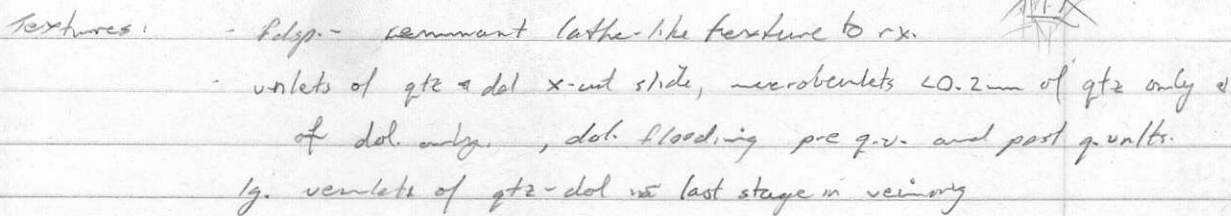 Textures: - fdsp. - remnant lathe-like texture to rx.
- vnlets of qtz & dol x-cut slide, microveinlets <0.2mm of qtz only &
of dol. only. , dol. flooding pre q.v. and post q. vnlts.
lg. veinlets of qtz-dol last stage in veining